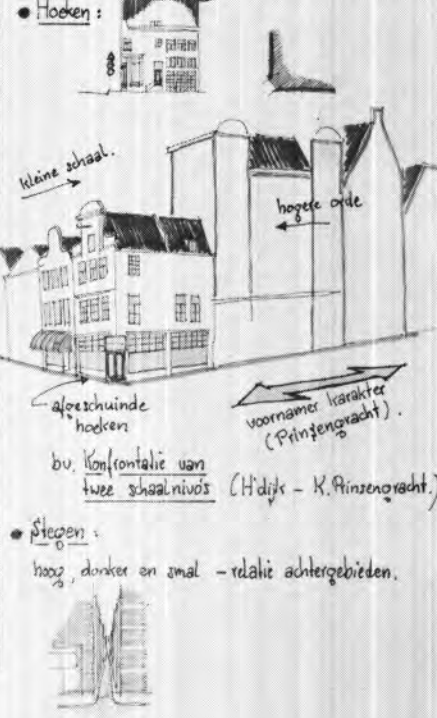 • Hoeken :
kleine schaal.
hogere orde
afgeschuinde
hoeken
voornamer karakter
(Prinsengracht).
bv. Konfrontatie van
twee schaalnivo's (H'dijk – K. Prinsengracht.)
• Stegen :
hoog, donker en smal – relatie achtergebieden.